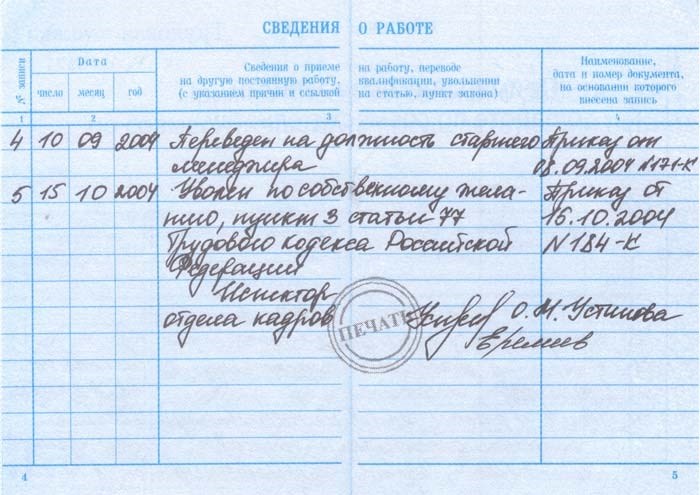 СВЕДЕНИЯ О РАБОТЕ
№ записи
Дата
число месяц год
Сведения о приеме на работу, переводе
на другую постоянную работу, квалификации, увольнении
(с указанием причин и ссылкой на статью, пункт закона)
Наименование,
дата и номер документа,
на основании которого
внесена запись
1 2 3 4
4 10 09 2004 Переведен на должность старшего Приказ от
менеджера 08.09.2004 №171-к
5 15 10 2004 Уволен по собственному жела- Приказ от
нию, пункт 3 статьи 77 15.10.2004
Трудового кодекса Российской N184-к
Федерации
Инспектор
отдела кадров О.М. Устинова
ПЕЧАТЬ
Еремеев
4 5